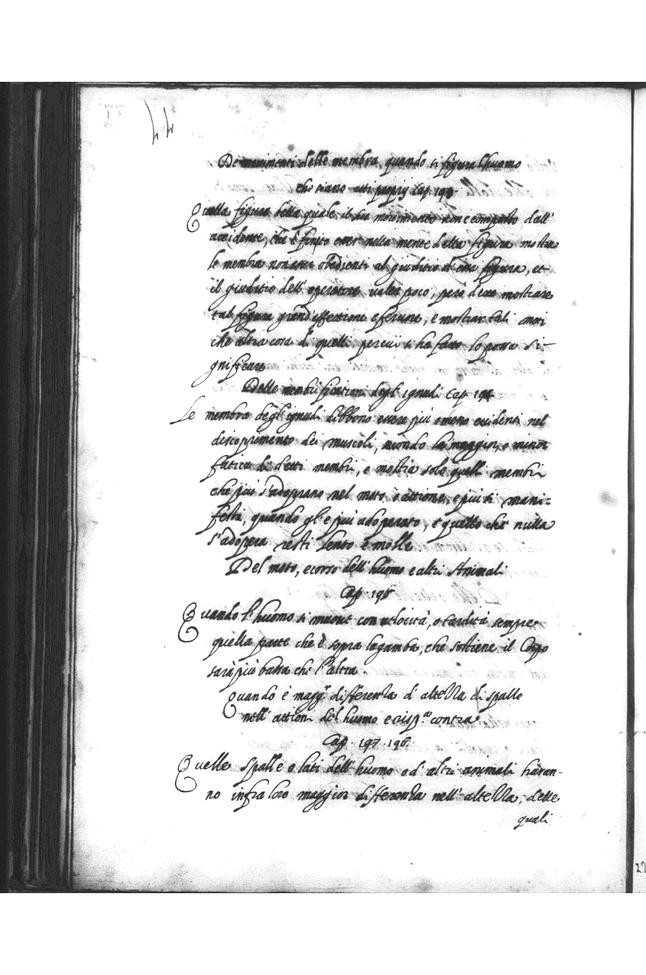 44
De movimenti delle membra, quando si figura l'huomo
che siano atti proprij Cap. 193
Quella figura della quale il suo movimento non è compagno dall'
accidente, ch'è finto esser nella mente della figura mostra
le membra non esser obedienti al giuditio di essa figura, et
il giuditio dell'operatore valer poco, però deve mostrare
tal figura grand'affettione e fervore, e mostrar tali moti
che altra cosa di quella perche si ha fatto lo possa si-
gnificare
Delle membrificationi degl'ignudi Cap. 194
Le membra degl'ignudi debbono essere più o meno evidenti nel
descoprimento dei muscoli, secondo la maggior, o minor
fatica di detti membri, e mostra solo quelli membri
che più s'adoprano nel moto o attione, e più si mani-
festi, quando gl'è più adoperato, e quello che nulla
s'adopera resti lento e molle
Del moto, e corso dell'huomo e altri Animali
Cap. 195
Quando l'huomo si muove con velocità, o tardità sempre
quella parte che è sopra la gamba, che sostiene il Corpo
sarà più bassa che l'altra.
Quando è magg.r differenza d'altezza di spalle
nell'attioni del huomo
Cap. 197. 196.
Quelle spalle o lati dell'huomo o d'altri animali haran-
no infra loro maggior differenza nell'altezza, delle
quali